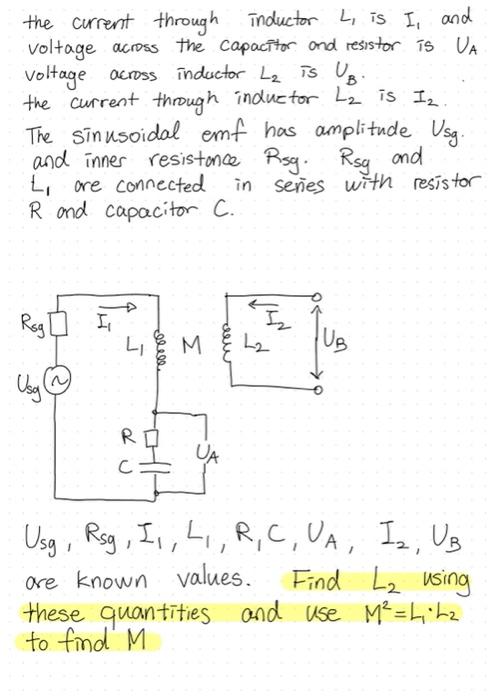 the current through inductor L₁ is I₁ and
voltage across the capacitor and resistor is U_A
voltage across inductor L₂ is U_B.
the current through inductor L₂ is I₂.
The sinusoidal emf has amplitude Usg.
and inner resistance Rsg. Rsg and
L₁ are connected in series with resistor
R and capacitor C.
Rsg
I₁
L₁
M
L₂
I₂
U_B
Usg
R
C
U_A
Usg, Rsg, I₁, L₁, R, C, U_A, I₂, U_B
are known values. Find L₂ using
these quantities and use M²=L₁·L₂
to find M